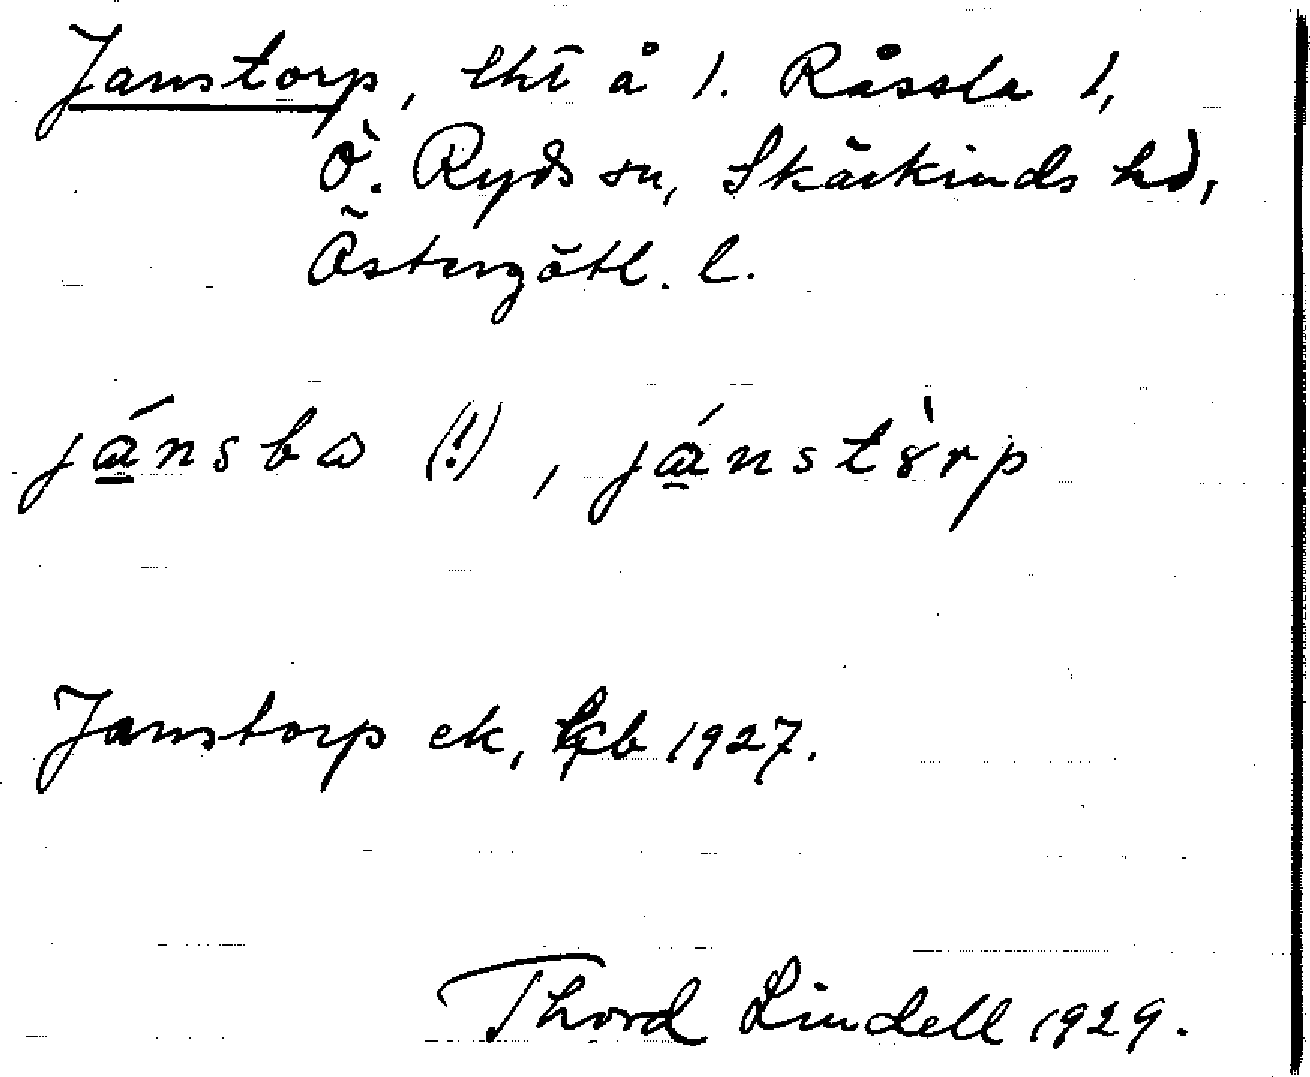 Janstorp, lht å 1. Råssla 1,
Ö. Ryds sn, Skärkinds hd,
Östergötl. l.
jánsba (!), jánstòrp
Janstorp ek, kb 1927.
Thord Lindell 1929.